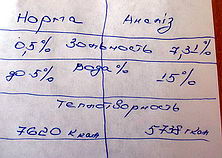 Норма Аналіз
0,5% Зольность 7,31%
до 5% вода% 15%
Теплотворность
7620 ккал 5738 ккал